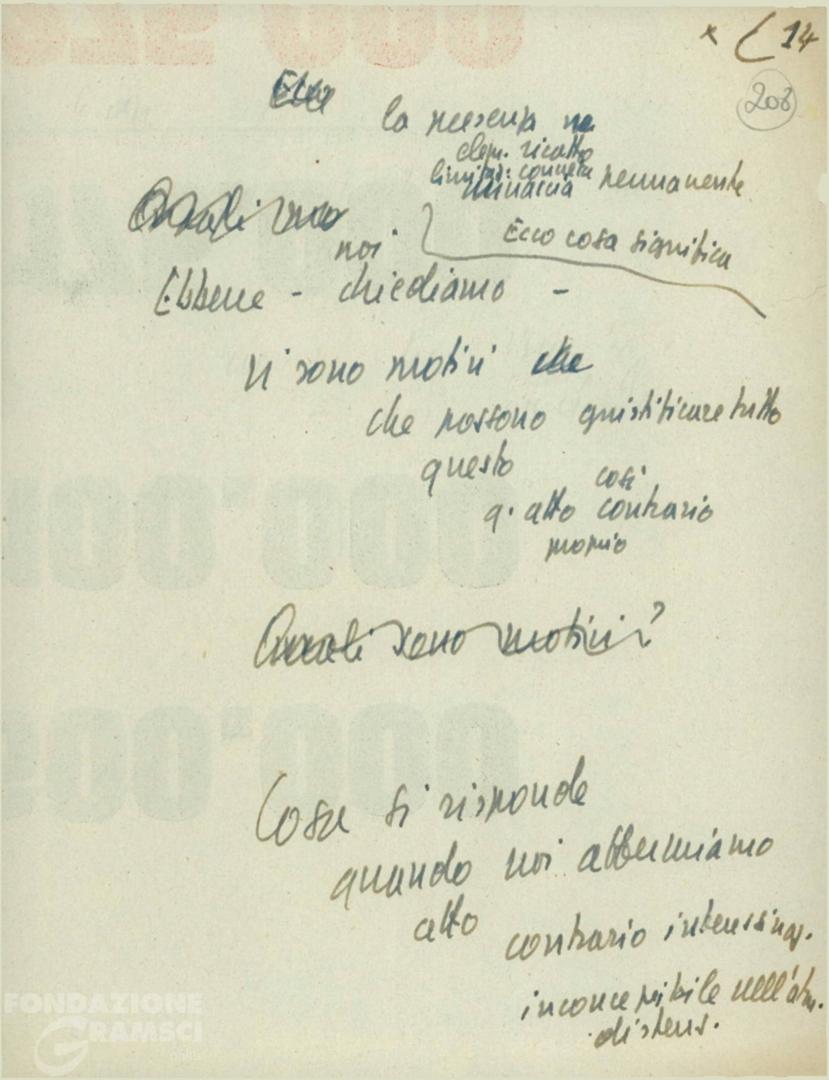 14
208
la presenza ne
elem. ricatto
minaccia permanente
Ecco cosa significa
noi
Ebbene - chiediamo -
Vi sono motivi che
che possono giustificare tutto
questo
così
q. atto contrario
proprio
Quali sono motivi?
Cosa si risponde
quando noi affermiamo
atto
contrario interessi naz.
inconcepibile nell'atm.
distens.
FONDAZIONE
GRAMSCI